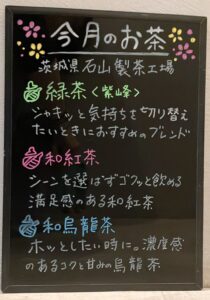 今月のお茶
茨城県石山製茶工場
緑茶〈紫峰〉
シャキッと気持ちを切り替え
たいときにおすすめのブレンド
和紅茶
シーンを選ばずゴクッと飲める
満足感のある和紅茶
和烏龍茶
ホッとしたい時に。濃度感
のあるコクと甘みの烏龍茶